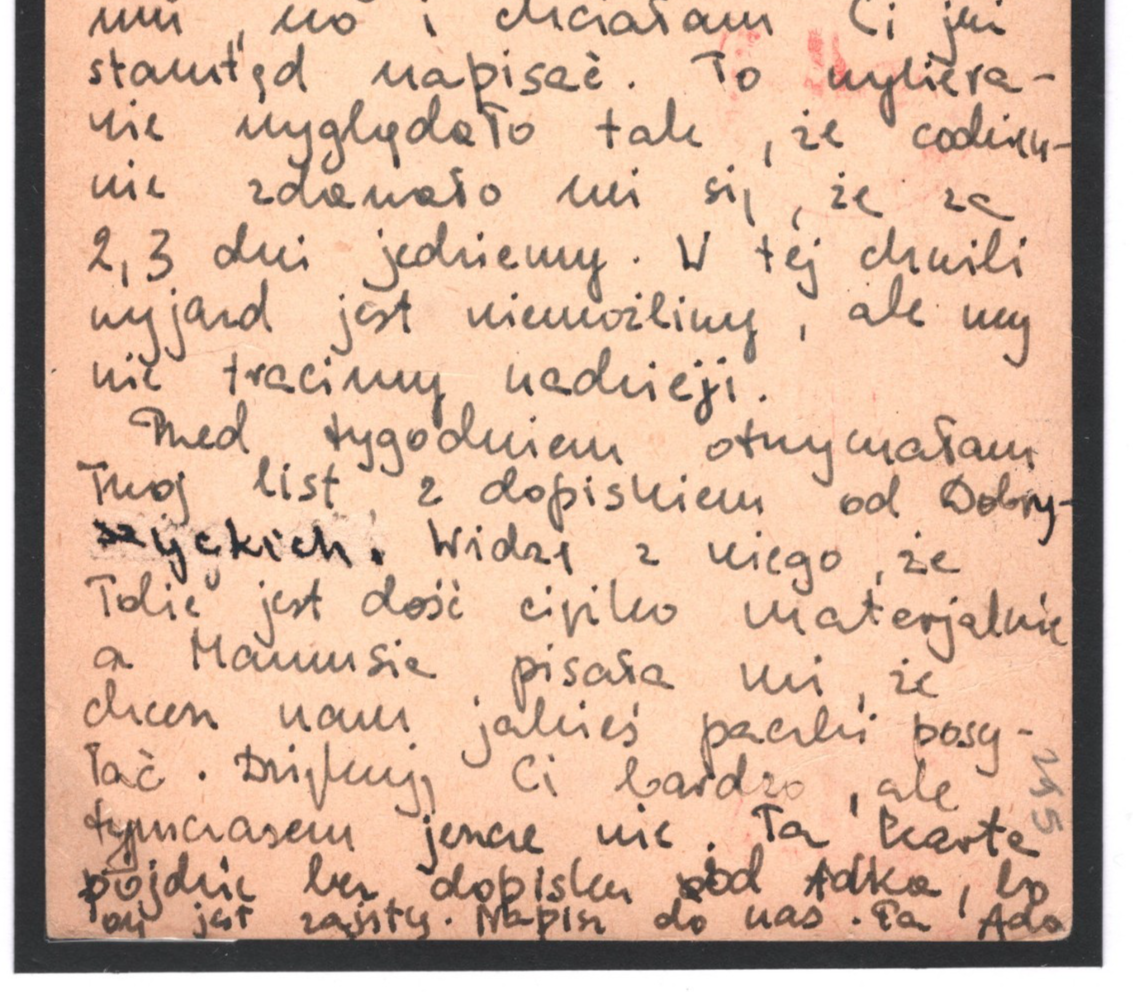 no i chciałam Ci już
stamtąd napisać. To wybiera-
nie wyglądało tak, że codzien-
nie zdawało mi się, że za
2,3 dni jedziemy. W tej chwili
wyjazd jest niemożliwy, ale my
nie tracimy nadzieji.
Przed tygodniem otrzymałam
Twoj list z dopiskiem od Dobry-
szyckich. Widzę z niego, że
Tobie jest dość ciężko materjalnie
a Mamusia pisała mi, że
chcesz nam jakieś paczki posy-
łać. Dziękuję Ci bardzo, ale
tymczasem jeszcze nie. Ta karta
pójdzie bez dopisku od Adka, bo
on jest zajęty. Napisz do nas. Pa Ada
245